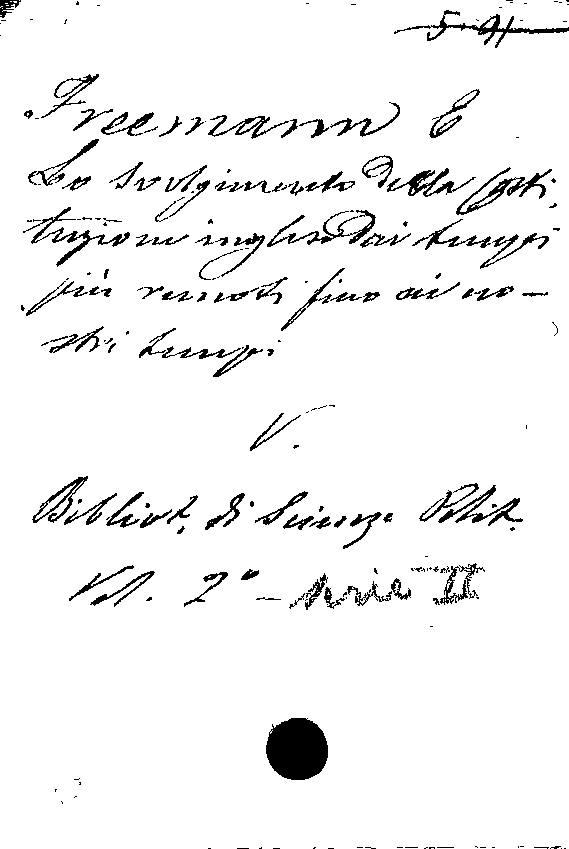 5-91
Freemann E
Lo svolgimento della Costi
tuzione inglese dai tempi
più remoti fino ai no-
stri tempi
V.
Bibliot. di Scienze Polit.
Vol. 2° - serie II